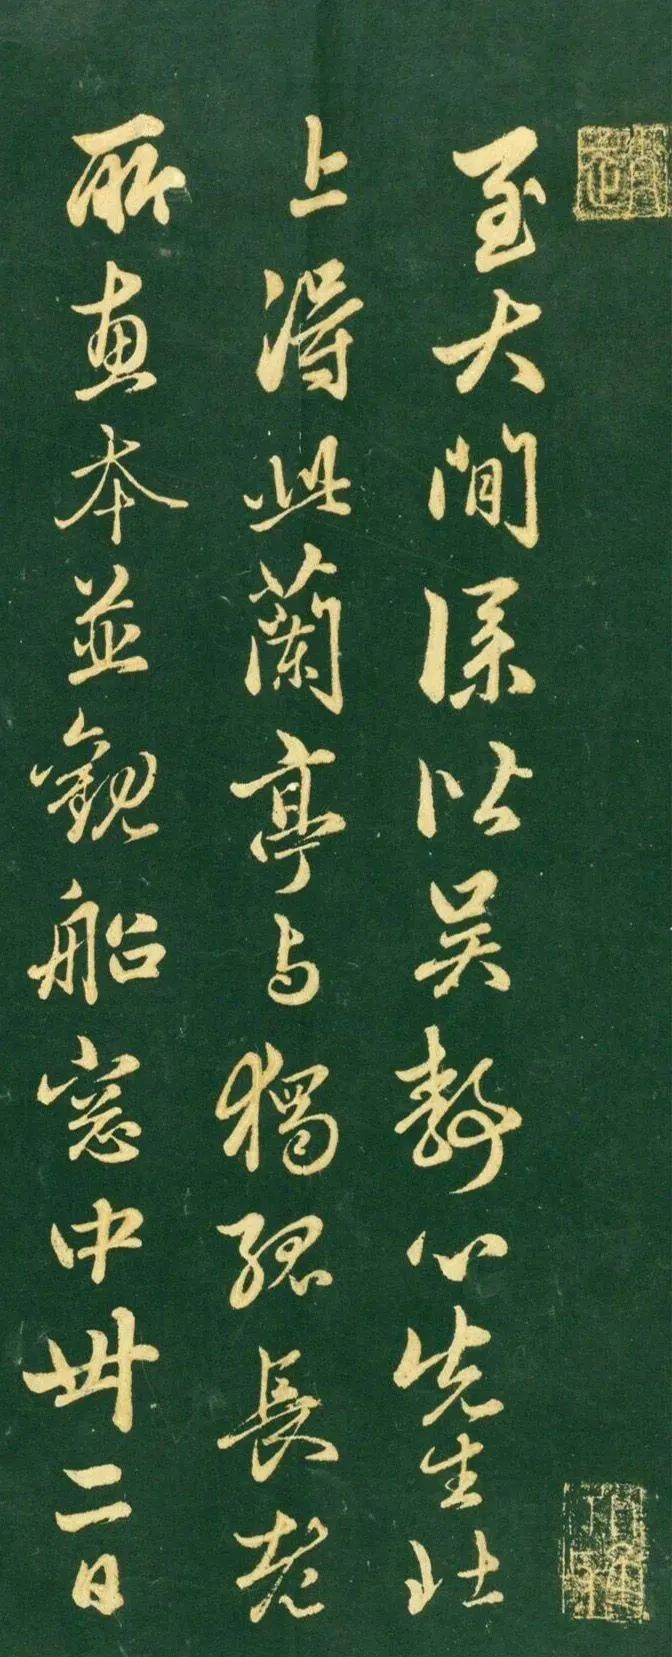 至大閒僕從吳靜心先生北
上得此蘭亭与獨孤長老
所惠本並觀船窓中卅二日